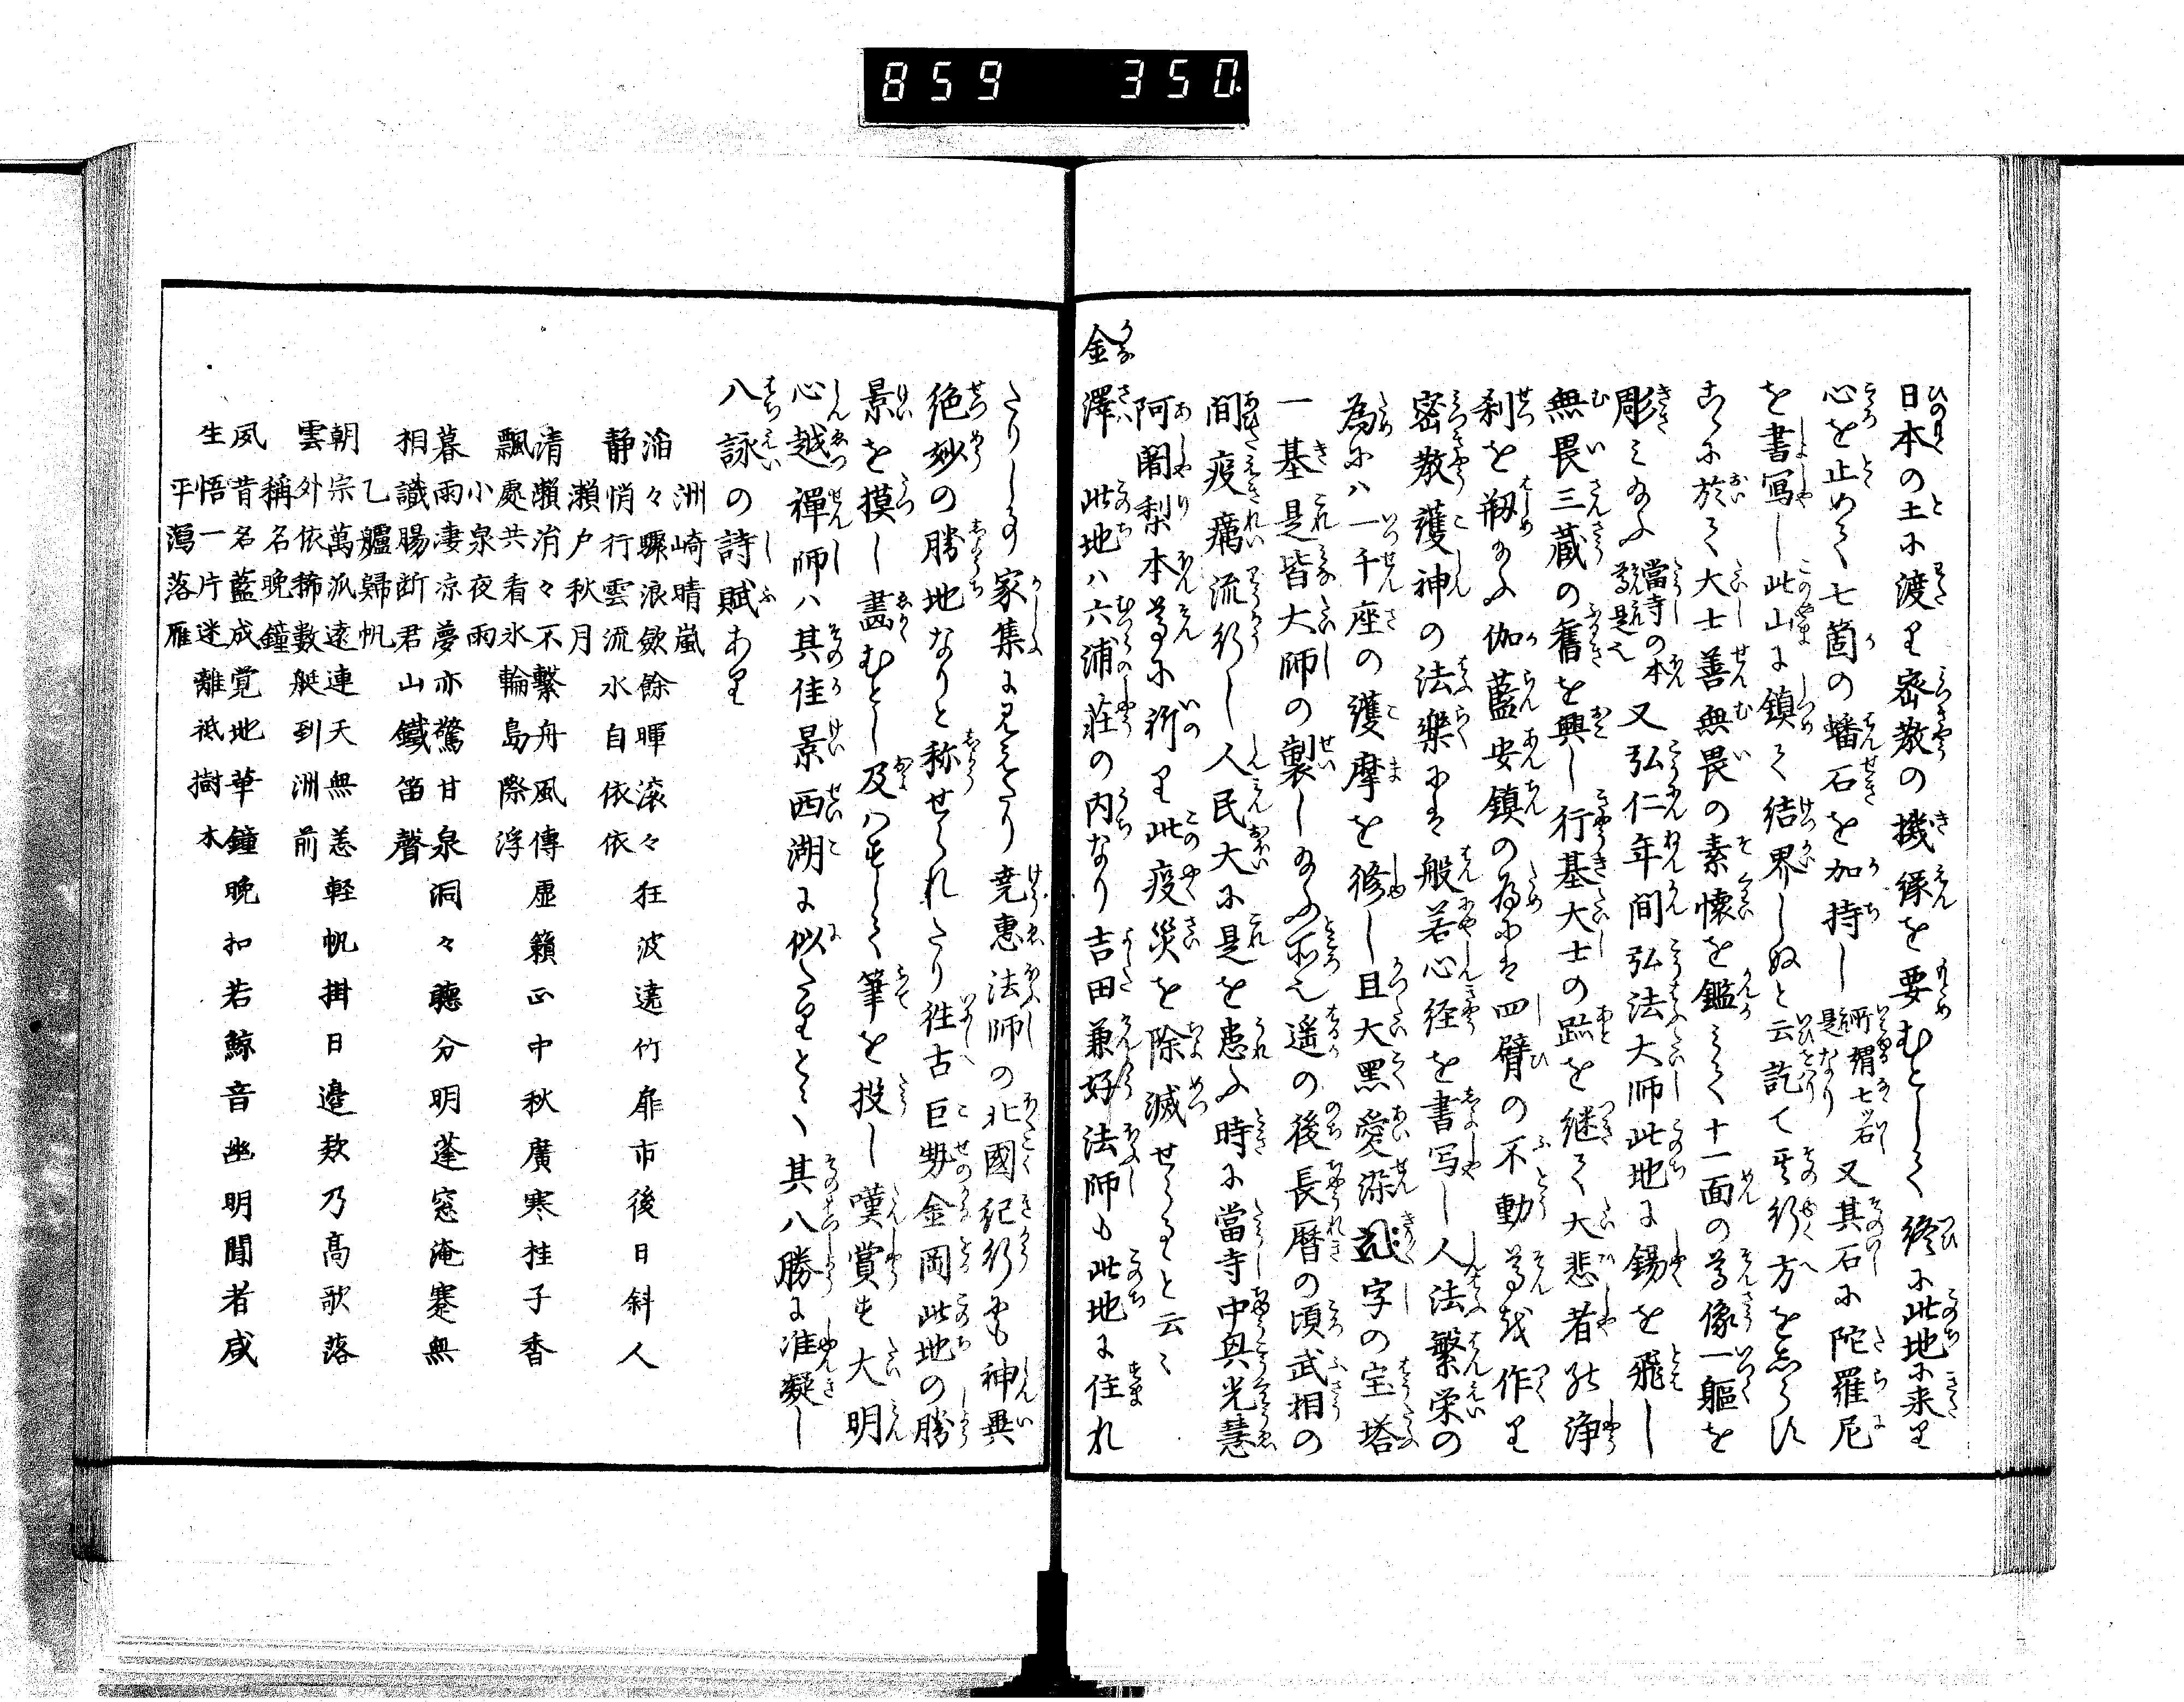 859 350
日本の土に渡り密教の機縁を要むとして終に此地に来り
心を止めて七箇の蟠石を加持し所謂七ッ石是なり又其石に陀羅尼
を書写し此山に鎮て結界しぬと云訖て其行方をしらす
こゝに於て大士善無畏の素懐を鑑みて十一面の尊像一軀を
彫みたまふ當寺の本尊是也又弘仁年間弘法大師此地に錫を飛し
無畏三蔵の舊を興し行基大士の跡を継て大悲者の浄
刹を剏たまふ伽藍安鎮の為には四臂の不動尊を作り
密教護神の法樂には般若心経を書写し人法繁栄の
為には一千座の護摩を修し且大黒愛染字の宝塔
一基是皆大師の製したまふ所也遥の後長暦の頃武相の
間疫癘流行し人民大に是を患ふ時に當寺中興光慧
阿闍梨本尊に祈り此疫災を除滅せらると云々
金澤 此地ハ六浦荘の内なり吉田兼好法師も此地に住れ
たりしよし家集に見えたり尭惠法師の北國紀行にも神異
絶妙の勝地なりと称せられたり往古巨勢金岡此地の勝
景を摸し畵むとし及はすして筆を投し嘆賞す大明
心越禪師ハ其佳景西湖に似たりとて其八勝に准擬し
八詠の詩賦あり
洲崎晴嵐
滔々驟浪歛餘暉滾々狂波遶竹扉市後日斜人
静悄行雲流水自依依
瀬戸秋月
清瀬涓々不繋舟風傳虚籟正中秋廣寒桂子香
飄處共看氷輪島際浮
小泉夜雨
暮雨凄凉夢亦驚甘泉洞々聴分明蓬窓淹蹇無
相識腸断君山鐵笛聲
乙艫歸帆
朝宗萬派遠連天無恙軽帆掛日邉欸乃高歌落
雲外依稀數艇到洲前
稱名晩鐘
夙昔名藍成覚地華鐘晩扣若鯨音幽明聞者咸
生悟一片迷離祗樹本
平潟落雁